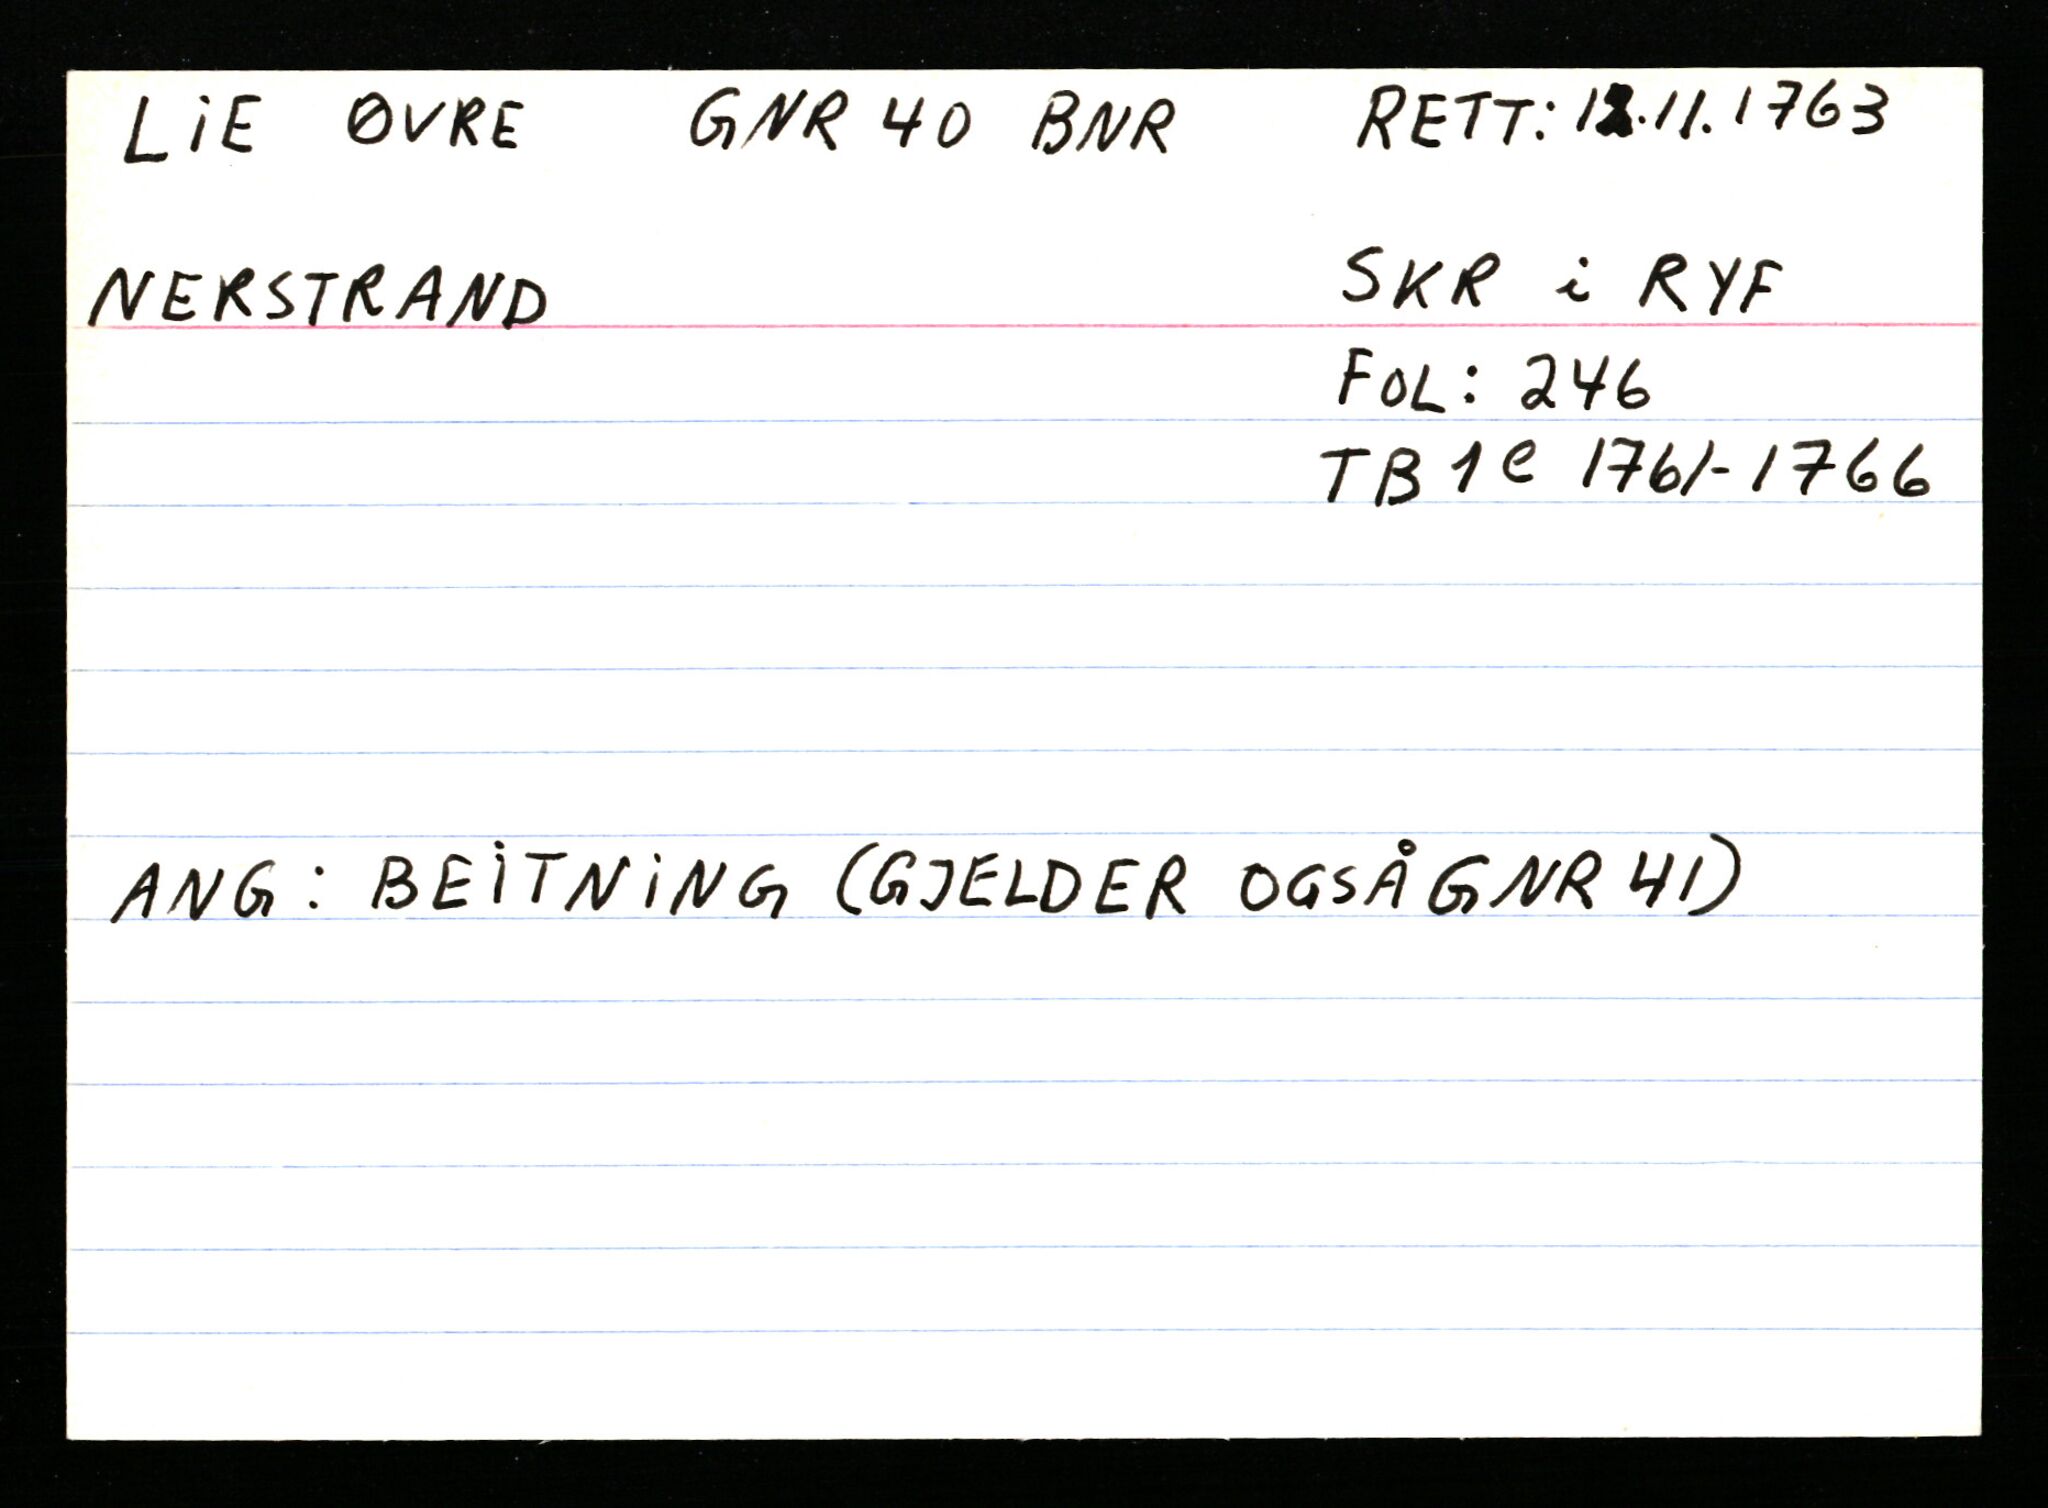 LiE ØVRE GNR 40 BNR RETT: 12.11.1763
NERSTRAND SKR i RYF
FOL: 246
TB 1e 1761-1766
ANG: BEiTNiNG (GJELDER OGSÅ GNR 41)